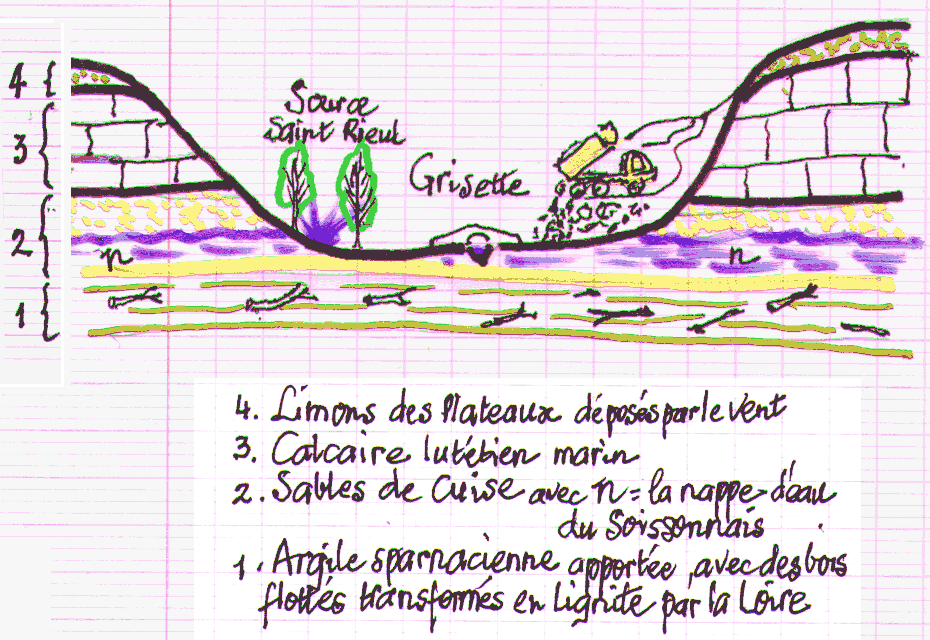 4
3
2
1
Source
Saint Rieul
Grisette
n
n
4. Limons des Plateaux déposés par le vent
3. Calcaire lutétien marin
2. Sables de Cuise avec n = la nappe d'eau
du Soissonnais
1. Argile sparnacienne apportée, avec des bois
flottés transformés en lignite par la Loire